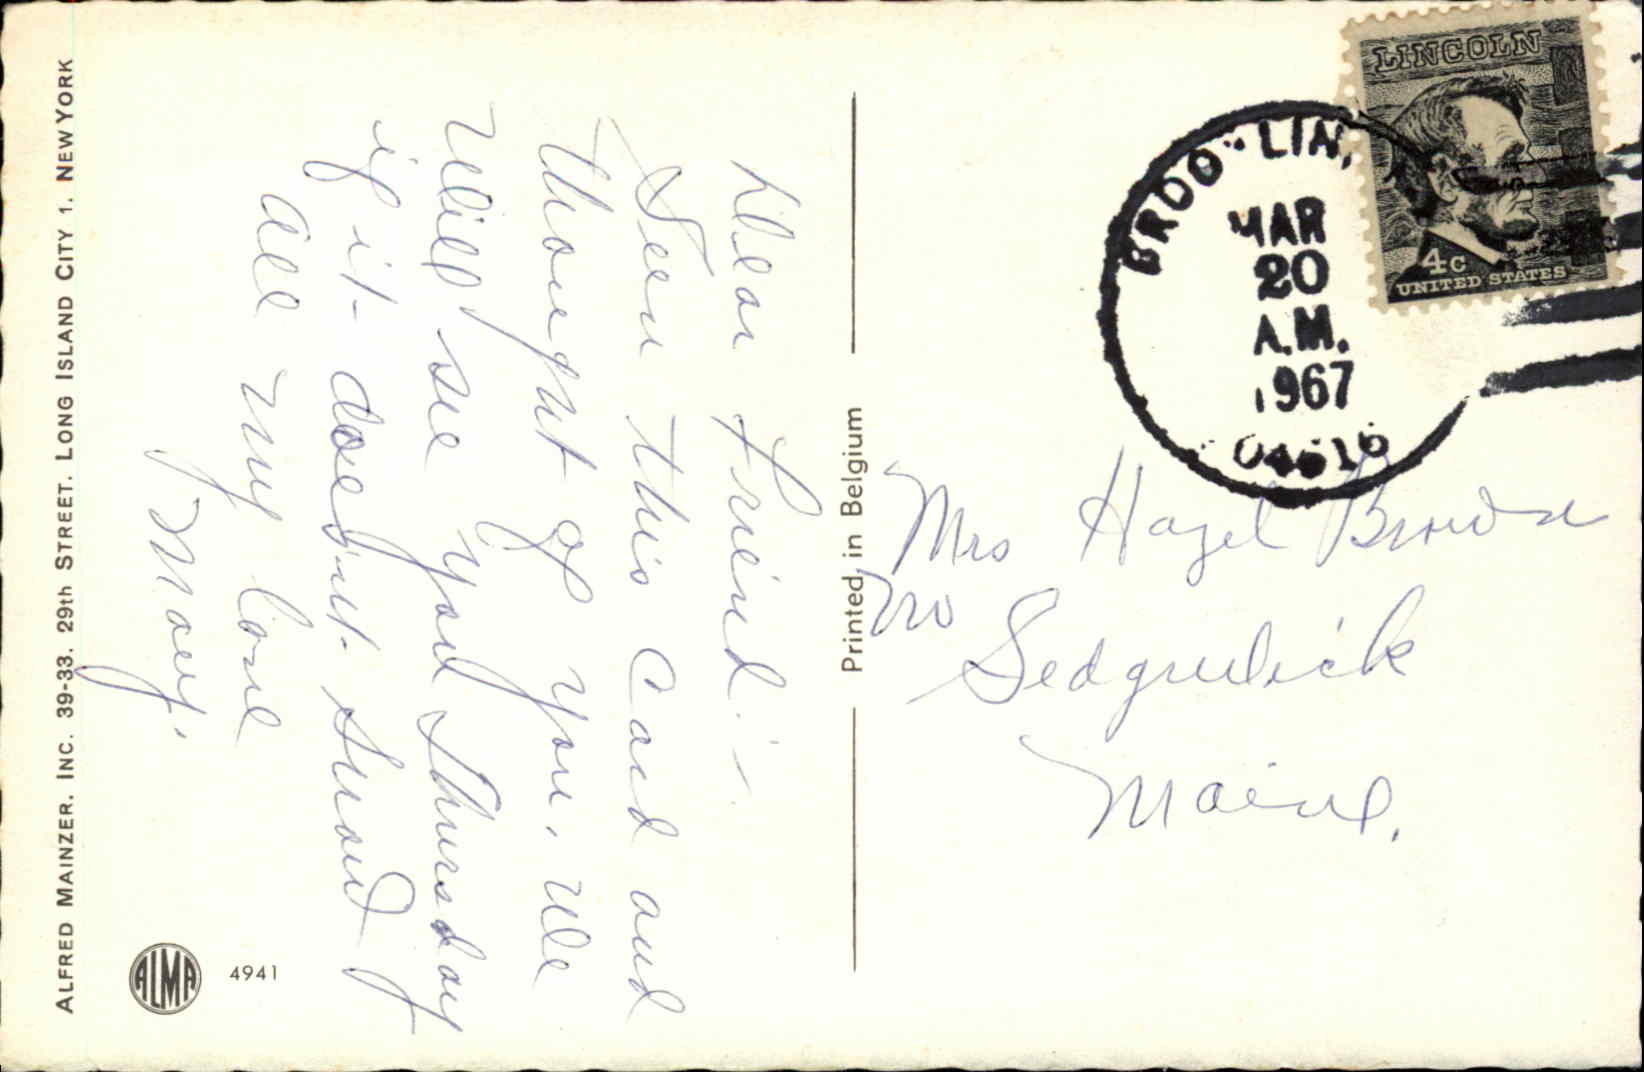 ALFRED MAINZER, INC. 39-33. 29th STREET. LONG ISLAND CITY 1. NEW YORK
Dear Friend:-
Seen this card and
thought of you. We
will see you Thursday
if it does'nt snow
all my love
May.
ALMA
4941
Printed in Belgium
LINCOLN
4c
UNITED STATES
MAR
20
A.M.
1967
04616
Mrs Hazel Brown
No Sedgwick
Maine.